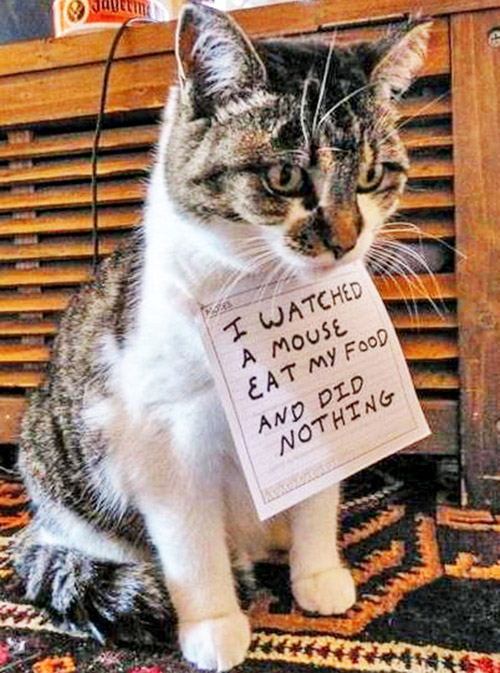 Jägerm
NOTES
I WATCHED
A MOUSE
EAT MY FOOD
AND DID
NOTHING